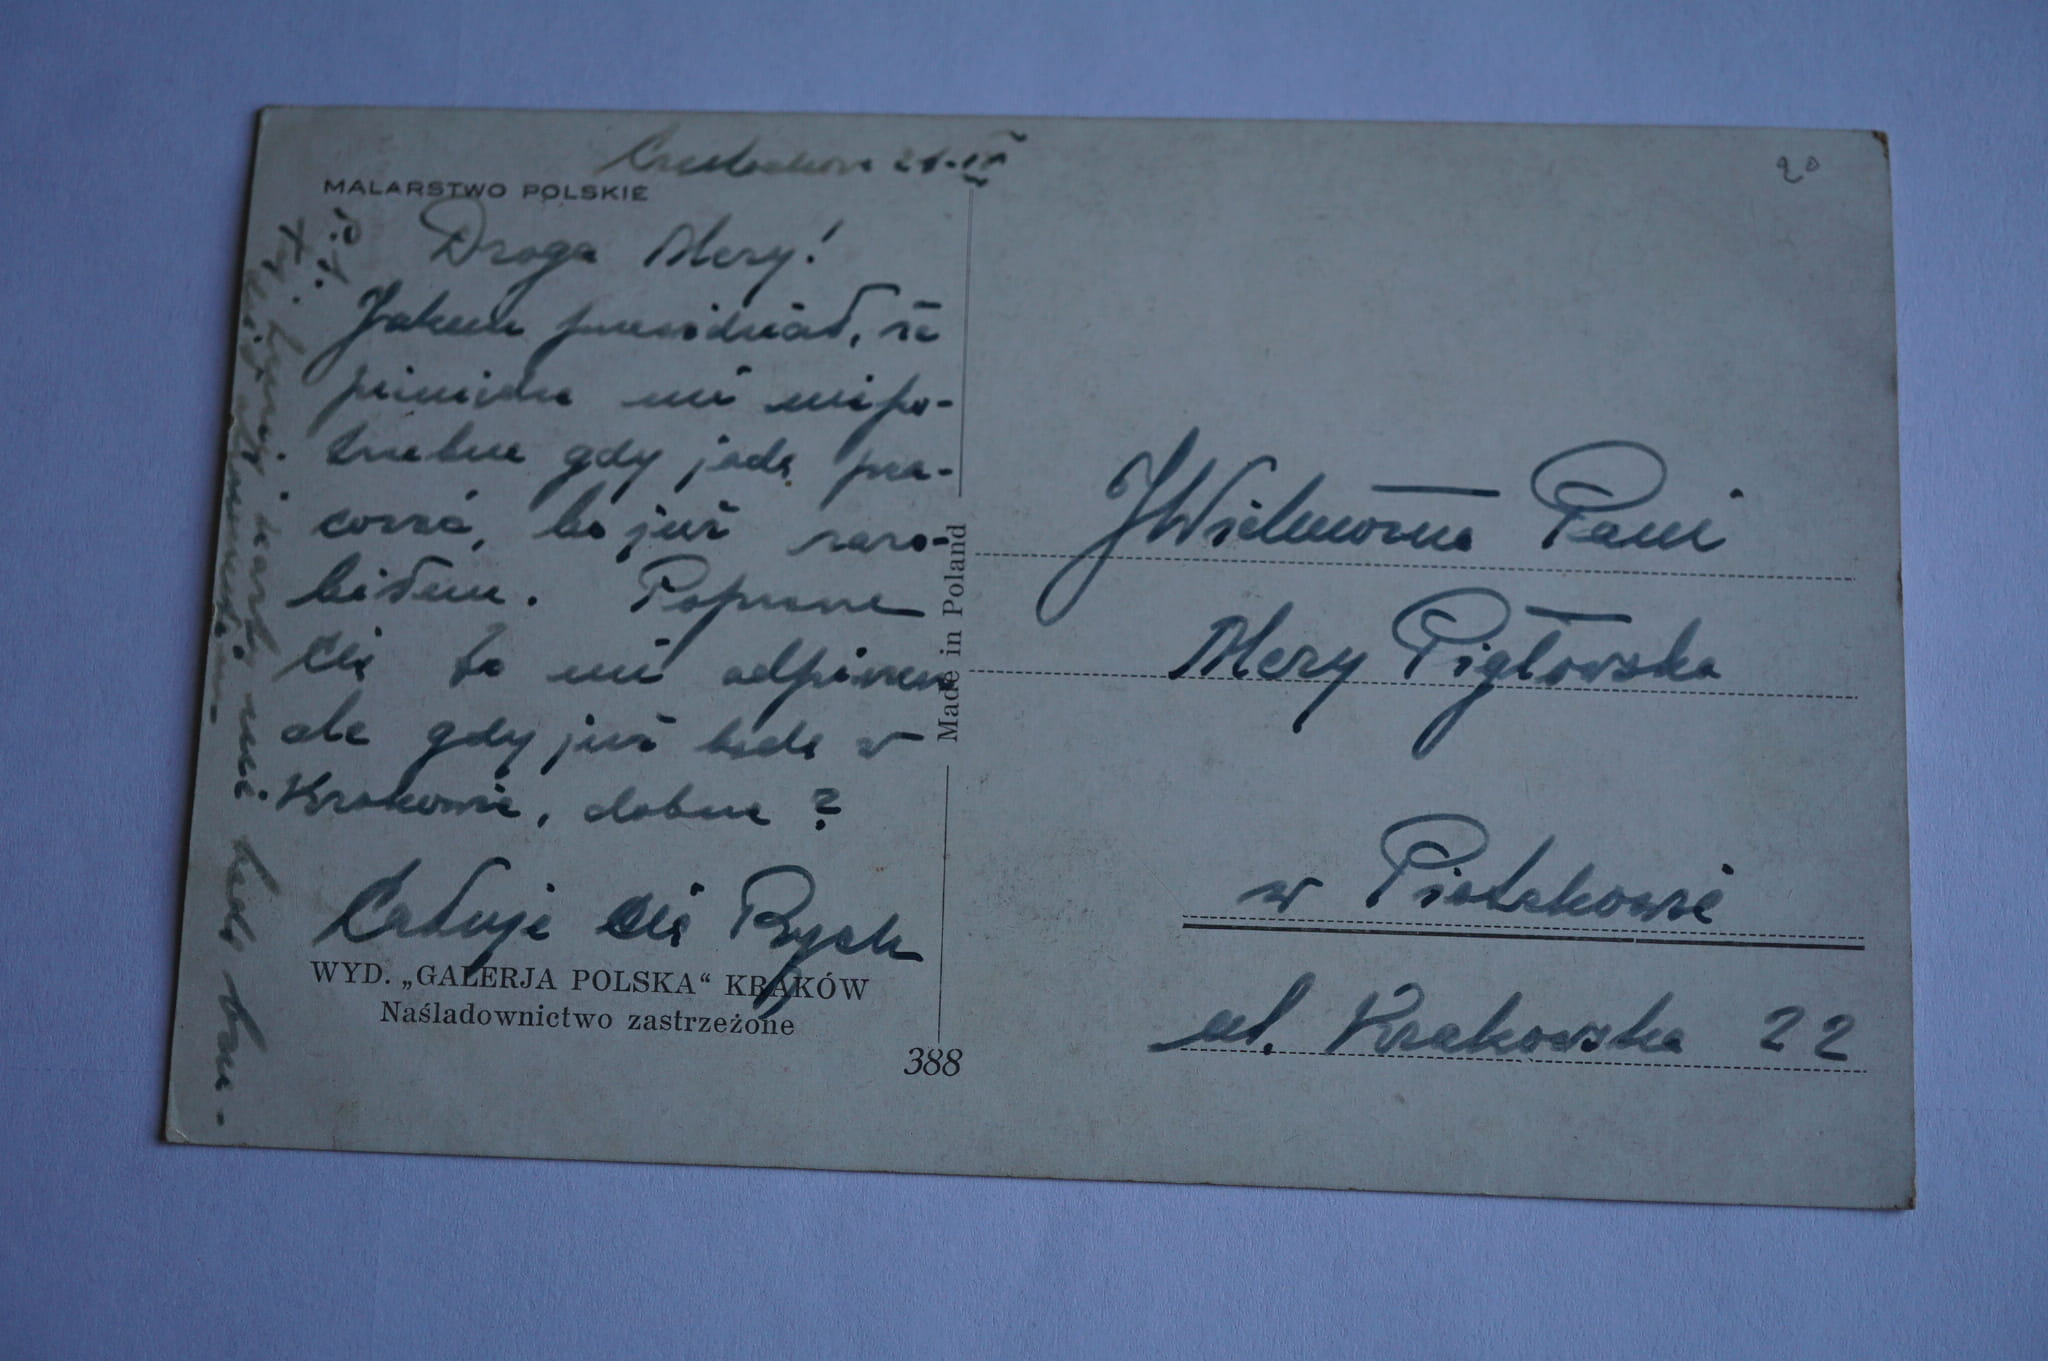 Częstochowa 21.IX
MALARSTWO POLSKIE
Droga Mery!
Jakem przewidział, że
pieniądze nie niepo-
trzebne gdy jadę pra-
cować, bo już zaro-
biłem. Poproszę
Cię to mi odpiszesz
ale gdy już będę w
Krakowie, dobrze?
Całuję Cię Rych
WYD. „GALERJA POLSKA“ KRAKÓW
Naśladownictwo zastrzeżone
388
Made in Poland
20
JWielmożna Pani
Mery Pigłowska
w Piotrkowie
ul. Krakowska 22